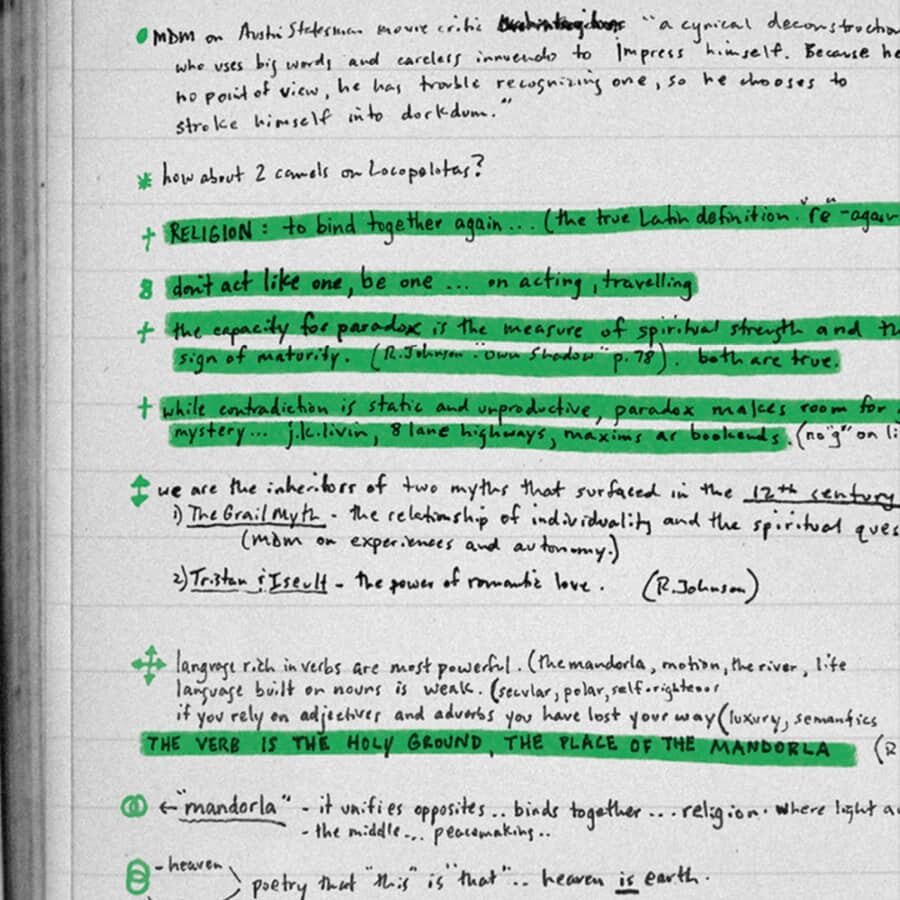 MDM on Austin Statesman movie critic "a cynical deconstruction
who uses big words and careless innuendo to impress himself. Because he
no point of view, he has trouble recognizing one, so he chooses to
stroke himself into dorkdum."
how about 2 camels on Locopelotas?
RELIGION: to bind together again... (the true Latin definition. "re" -again
don't act like one, be one ... on acting, travelling
the capacity for paradox is the measure of spiritual strength and the
sign of maturity. (R.Johnson "Own Shadow" p.78). both are true.
while contradiction is static and unproductive, paradox makes room for
mystery... j.k.livin, 8 lane highways, maxims as bookends. (no "g" on li
we are the inheritors of two myths that surfaced in the 12th century
1) The Grail Myth - the relationship of individuality and the spiritual ques
(MDM on experiences and autonomy.)
2) Tristan & Iseult - the power of romantic love. (R.Johnson)
language rich in verbs are most powerful. (the mandorla, motion, the river, life
language built on nouns is weak. (secular, polar, self-righteous
if you rely on adjectives and adverbs you have lost your way (luxury, semantics
THE VERB IS THE HOLY GROUND, THE PLACE OF THE MANDORLA (R
← "mandorla" - it unifies opposites.. binds together... religion. where light a
- the middle... peacemaking..
- heaven
poetry that "this" is "that".. heaven is earth.